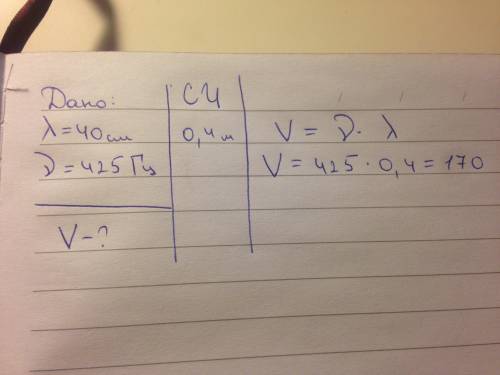 Дано: СИ
λ = 40 см 0,4 м V = ν · λ
ν = 425 Гц V = 425 · 0,4 = 170
V - ?